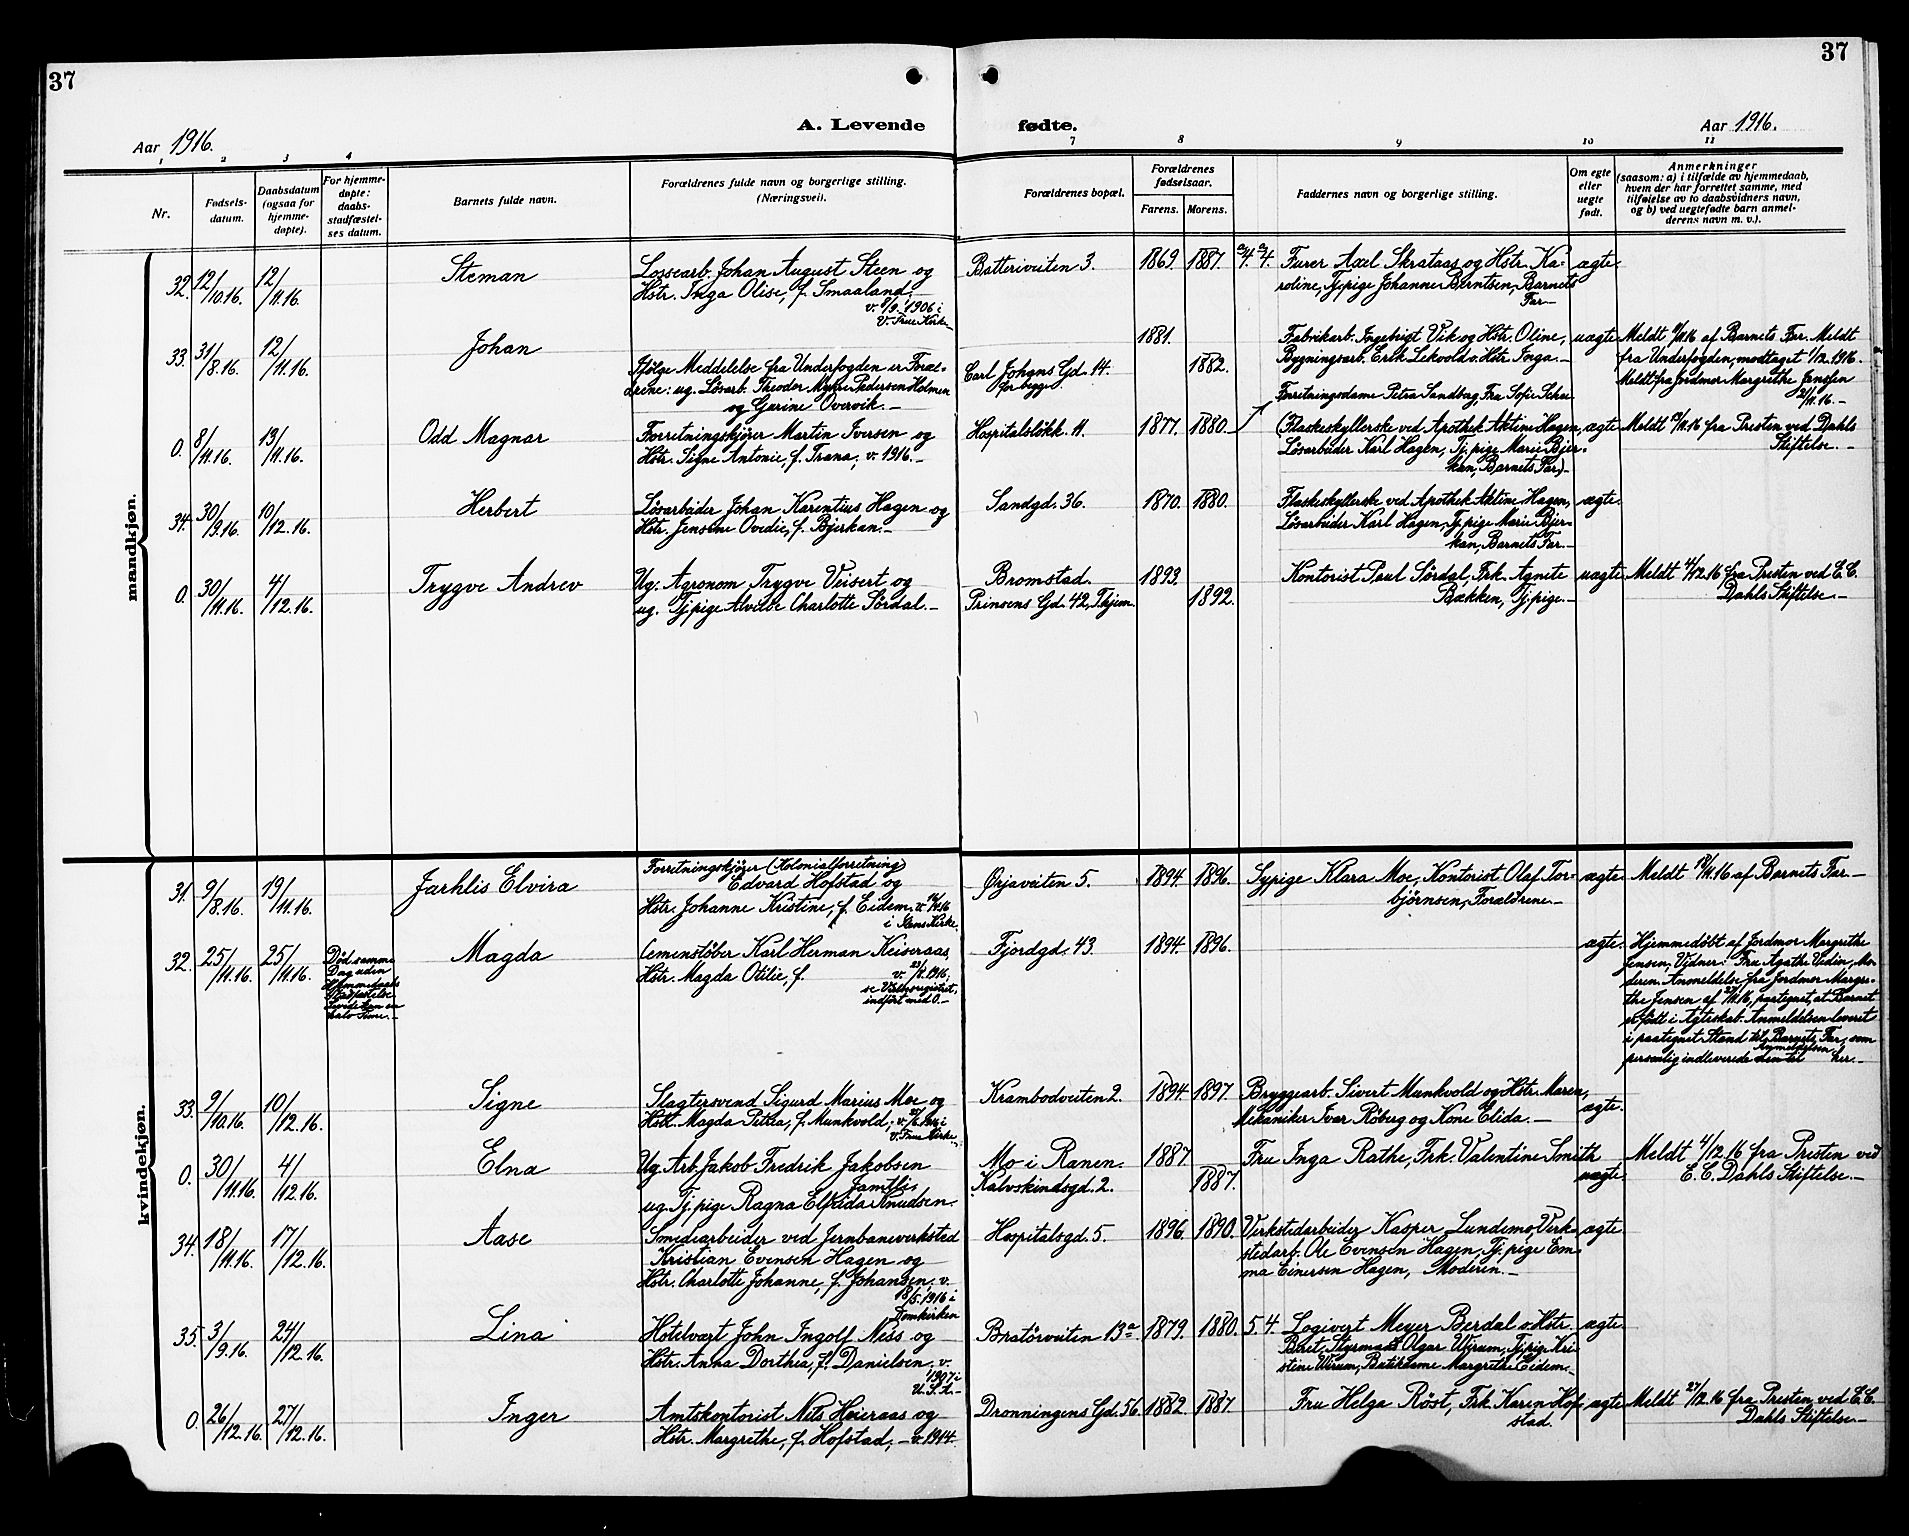 37
37
Aar 1916.
A. Levende
fødte.
Aar 1916.
1
2
3
4
7
8
9
10
11
Nr.
Fødsels-
datum.
Daabsdatum
(ogsaa for
hjemme-
døpte).
For hjemme-
døpte:
daabs-
stadfæstel-
ses datum.
Barnets fulde navn.
Forældrenes fulde navn og borgerlige stilling.
(Næringsvei).
Forældrenes bopæl.
Forældrenes
fødselsaar.
Farens.
Morens.
Faddernes navn og borgerlige stilling.
Om egte
eller
uegte
født.
Anmerkninger
(saasom: a) i tilfælde av hjemmedaab,
hvem der har forrettet samme, med
tilføielse av to daabsvidners navn,
og b) ved uegtefødte barn anmel-
derens navn m. v.).
mandkjøn.
32.
12/10.16.
12/11.16.
Steman
Lossearb. Johan August Steen og
Hstr. Inga Olise, f. Smaaland.
v. 8/9. 1906 i
V. Frue Kirke
Batteriveiten 3.
1869.
1887.
4.
4.
Furer Axel Skrataas og Hstr. Ka-
roline, Tj.pige Johanne Berntsen, Barnets
Far.—
ægte.
33.
31/8.16.
12/11.16.
Johan
Ifølge Meddelelse fra Underfogden er Foræl-
drene: ug. Lösarb. Theodor Pedersen Holmen
og Gurine Overvik.—
Carl Johans Gd. 14.
forbygg
1881.
1882.
Fabrikarb. Ingebrigt Vik og Hstr. Oline,
Bygningsarb. Erik Lekvold o. Hstr. Inga.—
uægte
Meldt 9/11.16 af Barnets Far. Meldt
fra Underfogden, modtaget 1/12.1916.
Meldt fra Jordmor Margrethe Jensen
2/11.16.—
0.
8/11.16.
13/11.16.
Odd Magnar
Forretningskjörer Martin Iversen og
Hstr. Signe Antonie, f. Trana, v. 1916.—
Hospitalslökk. 11.
1877.
1880.
Forretningsdame Petra Sandberg, Fru Sofie
(Flaskeskyllerske ved Apothek Aktine Hagen,
Lösarbeider Karl Hagen, Tj.pige Marie Bjer-
kan, Barnets Far)—
ægte
Meldt 13/11.16 fra Presten ved Dahls
Stiftelse.—
34.
30/9.16.
10/12.16.
Herbert
Lösarbeider Johan Karentius Hagen og
Hstr. Jensine Ovedie, f. Bjerkan.—
Sandgd. 36.
1870.
1880.
Flaskeskyllerske ved Apothek Aktine Hagen,
Lösarbeider Karl Hagen, Tj.pige Marie Bjer-
kan, Barnets Far.—
ægte.
0.
30/11.16.
4/12.16.
Trygve Andrev
Ug. Agronom Trygve Veisert og
ug. Tj.pige Alvilde Charlotte Sördal.—
Bromstad.
Prinsens Gd. 42, Thjem.
1893.
1892.
Kontorist Paul Sördal, Frk. Agnete
Bækken, Tj.pige.—
uægte
Meldt 4/12.16 fra Presten ved E. C.
Dahls Stiftelse.—
kvindekjøn.
31.
9/8.16.
19/11.16.
Jarhlis Elvira
Forretningskjörer (Kolonialforretning)
Edvard Hofstad og
Hstr. Johanne Kristine, f. Eidem.
i Kirke.
Ørjaveiten 5.
1894.
1896.
Sypige Klara Moe, Kontorist Olef Tor-
björnsen, Forældrene.—
ægte
Meldt af Barnets Far.—
32.
25/11.16.
25/11.16.
Död samme
Dag uden
Hjemmedaabs
Stadfæstelse.
Levde kun en
halv Time.—
Magda
Cementstöber Karl Herman Keiseraas,
Hstr. Magda Otilie, f.
se Vielsesregistret,
indfört med 0.—
Fjordgd. 43
1894.
1896.
ægte.
Hjemmedöbt af Jordmor Margrethe
Jensen, Vidner: Fru Agathe Vedin, Mo-
deren. Anmeldelse fra Jordmor Margre-
the Jensen af 27/11.16, paategnet, at Barnet
er födt i Ægteskab. Anmeldelsen leveret
i paategnet Stand til Barnets Far, som
personlig indleverede Anmeldelsen her.—
33.
9/10.16.
10/12.16.
Signe
Slagtersvend Sigurd Marius Moe og
Hstr. Magda Petrea, f. Munkvold,
V. Frue Kirke.
Krambodveiten 2.
1894
1897
Bryggearb. Sivert Munkvold og Hstr. Maren,
Mekaniker Ivar Röberg og Kone Elida.—
ægte.
0.
30/11.16.
4/12.16.
Elna
Ug. Arb. Jakob Fredrik Jakobsen
Jamtli,
ug. Tj.pige Ragna Elfrida Knudsen.
Mo i Ranen.
Kalvskindsgd. 2.
1887
1887.
Fru Inga Rathe, Frk. Valentine Smith
uægte
Meldt 4/12.16 fra Presten ved
E. C. Dahls Stiftelse.—
34.
18/11.16.
17/12.16.
Aase
Smediarbeider ved Jernbaneverksted
Kristian Evensen Hagen og
Hstr. Charlotte Johanne, f. Johansen, v.
18/5.1916 i
Domkirken
Hospitalsgd. 5.
1896.
1890.
Verkstedarbeider Kasper Lundemo, Verk-
stedarb. Ole Evensen Hagen, Tj.pige Em-
ma Einersen Hagen, Moderen.—
ægte
35.
3/9.16.
24/12.16.
Lina
Hotelvært John Ingolf Ness og
Hstr. Anna Dorthea, f. Danielsen. v.
1907 i
U. S. A.—
Bratörveiten 13a
1879.
1880.
5.
4.
Logivert Meyer Berdal o. Hstr.
Beret, Styrmand Olgar Wirum, Tj.pige Kri-
stine Wirum, Butikdame Margrethe Eidem.—
ægte
0.
26/12.16.
27/12.16.
Inger
Amtskontorist Nils Heieraas og
Hstr. Margrethe, f. Hofstad,— v. 1914.
Dronningens Gd. 56.
1882.
1887
Fru Helga Röst, Frk. Karen Hof-
stad.
ægte
Meldt 27/12.16 fra Presten ved E. C.
Dahls Stiftelse.—